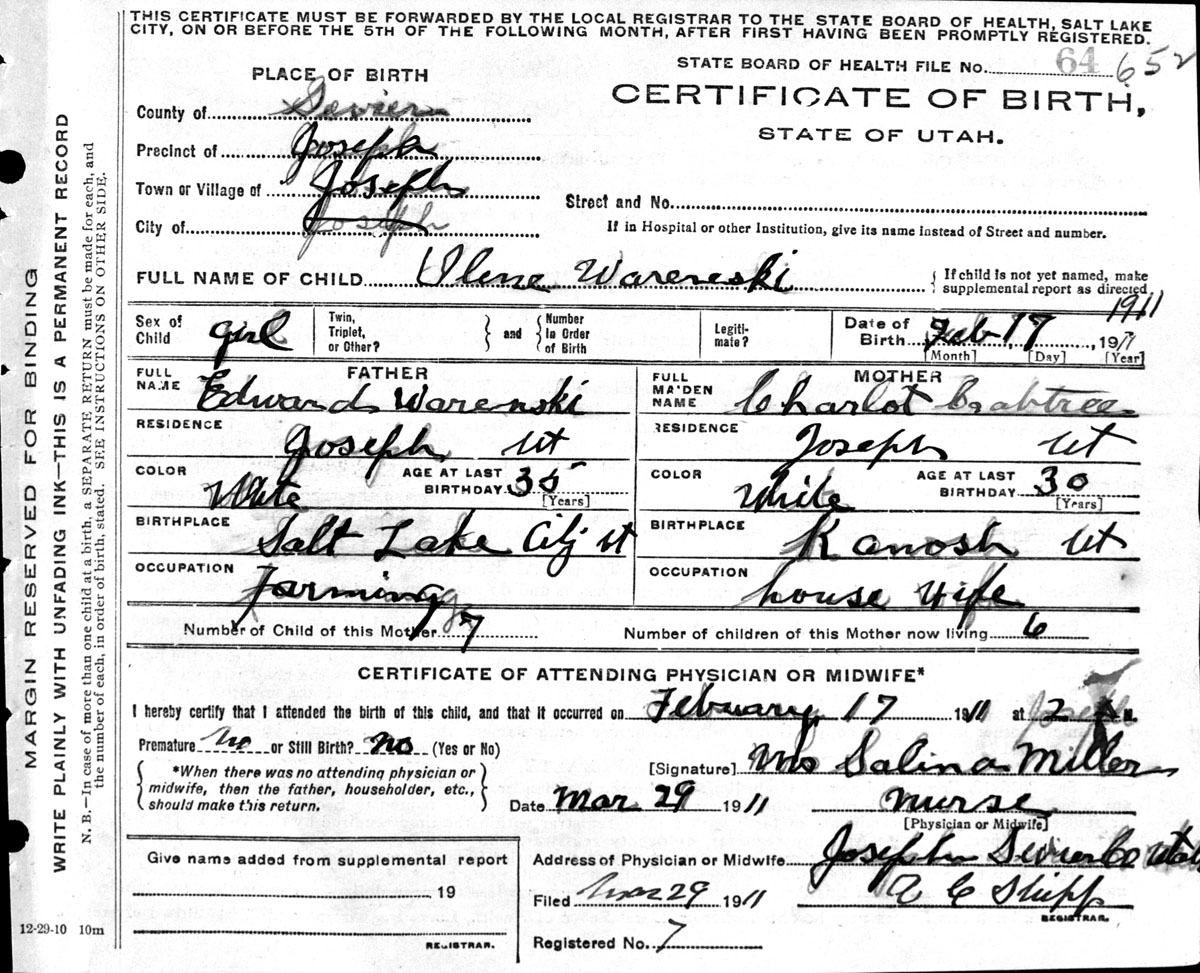 THIS CERTIFICATE MUST BE FORWARDED BY THE LOCAL REGISTRAR TO THE STATE BOARD OF HEALTH, SALT LAKE
CITY, ON OR BEFORE THE 5TH OF THE FOLLOWING MONTH, AFTER FIRST HAVING BEEN PROMPTLY REGISTERED.
STATE BOARD OF HEALTH FILE No. 64 652
PLACE OF BIRTH
CERTIFICATE OF BIRTH,
STATE OF UTAH.
County of Sevier
Precinct of Joseph
Town or Village of Joseph
Street and No.
City of Joseph
If in Hospital or other Institution, give its name instead of Street and number.
FULL NAME OF CHILD Ilene Wareneski
{ If child is not yet named, make supplemental report as directed
1911
Sex of Child girl Twin, Triplet, or Other? } and { Number in Order of Birth Legitimate? Date of Birth Feb 17, 191
[Month] [Day] [Year]
FATHER
FULL NAME Edward Warenski
RESIDENCE Joseph Ut
COLOR White AGE AT LAST BIRTHDAY 35
[Years]
BIRTHPLACE Salt Lake City Ut
OCCUPATION Farming
MOTHER
FULL MAIDEN NAME Charlot Crabtree
RESIDENCE Joseph Ut
COLOR White AGE AT LAST BIRTHDAY 30
[Years]
BIRTHPLACE Kanosh Ut
OCCUPATION house Wife
Number of Child of this Mother 7 Number of children of this Mother now living 6
CERTIFICATE OF ATTENDING PHYSICIAN OR MIDWIFE*
I hereby certify that I attended the birth of this child, and that it occurred on February 17 1911 at 2 A M.
Premature no or Still Birth? no (Yes or No)
{ *When there was no attending physician or
midwife, then the father, householder, etc.,
should make this return. }
[Signature] Mrs Salina Miller
Date Mar 29 1911 nurse
[Physician or Midwife]
Give name added from supplemental report
19
REGISTRAR.
Address of Physician or Midwife Joseph Sevier Co Utah
Filed Mar 29 1911 A C Shipp
REGISTRAR.
Registered No. 7
12-29-10 10m
MARGIN RESERVED FOR BINDING
WRITE PLAINLY WITH UNFADING INK—THIS IS A PERMANENT RECORD
N. B.—In case of more than one child at a birth, a SEPARATE RETURN must be made for each, and
the number of each, in order of birth, stated. SEE INSTRUCTIONS ON OTHER SIDE.